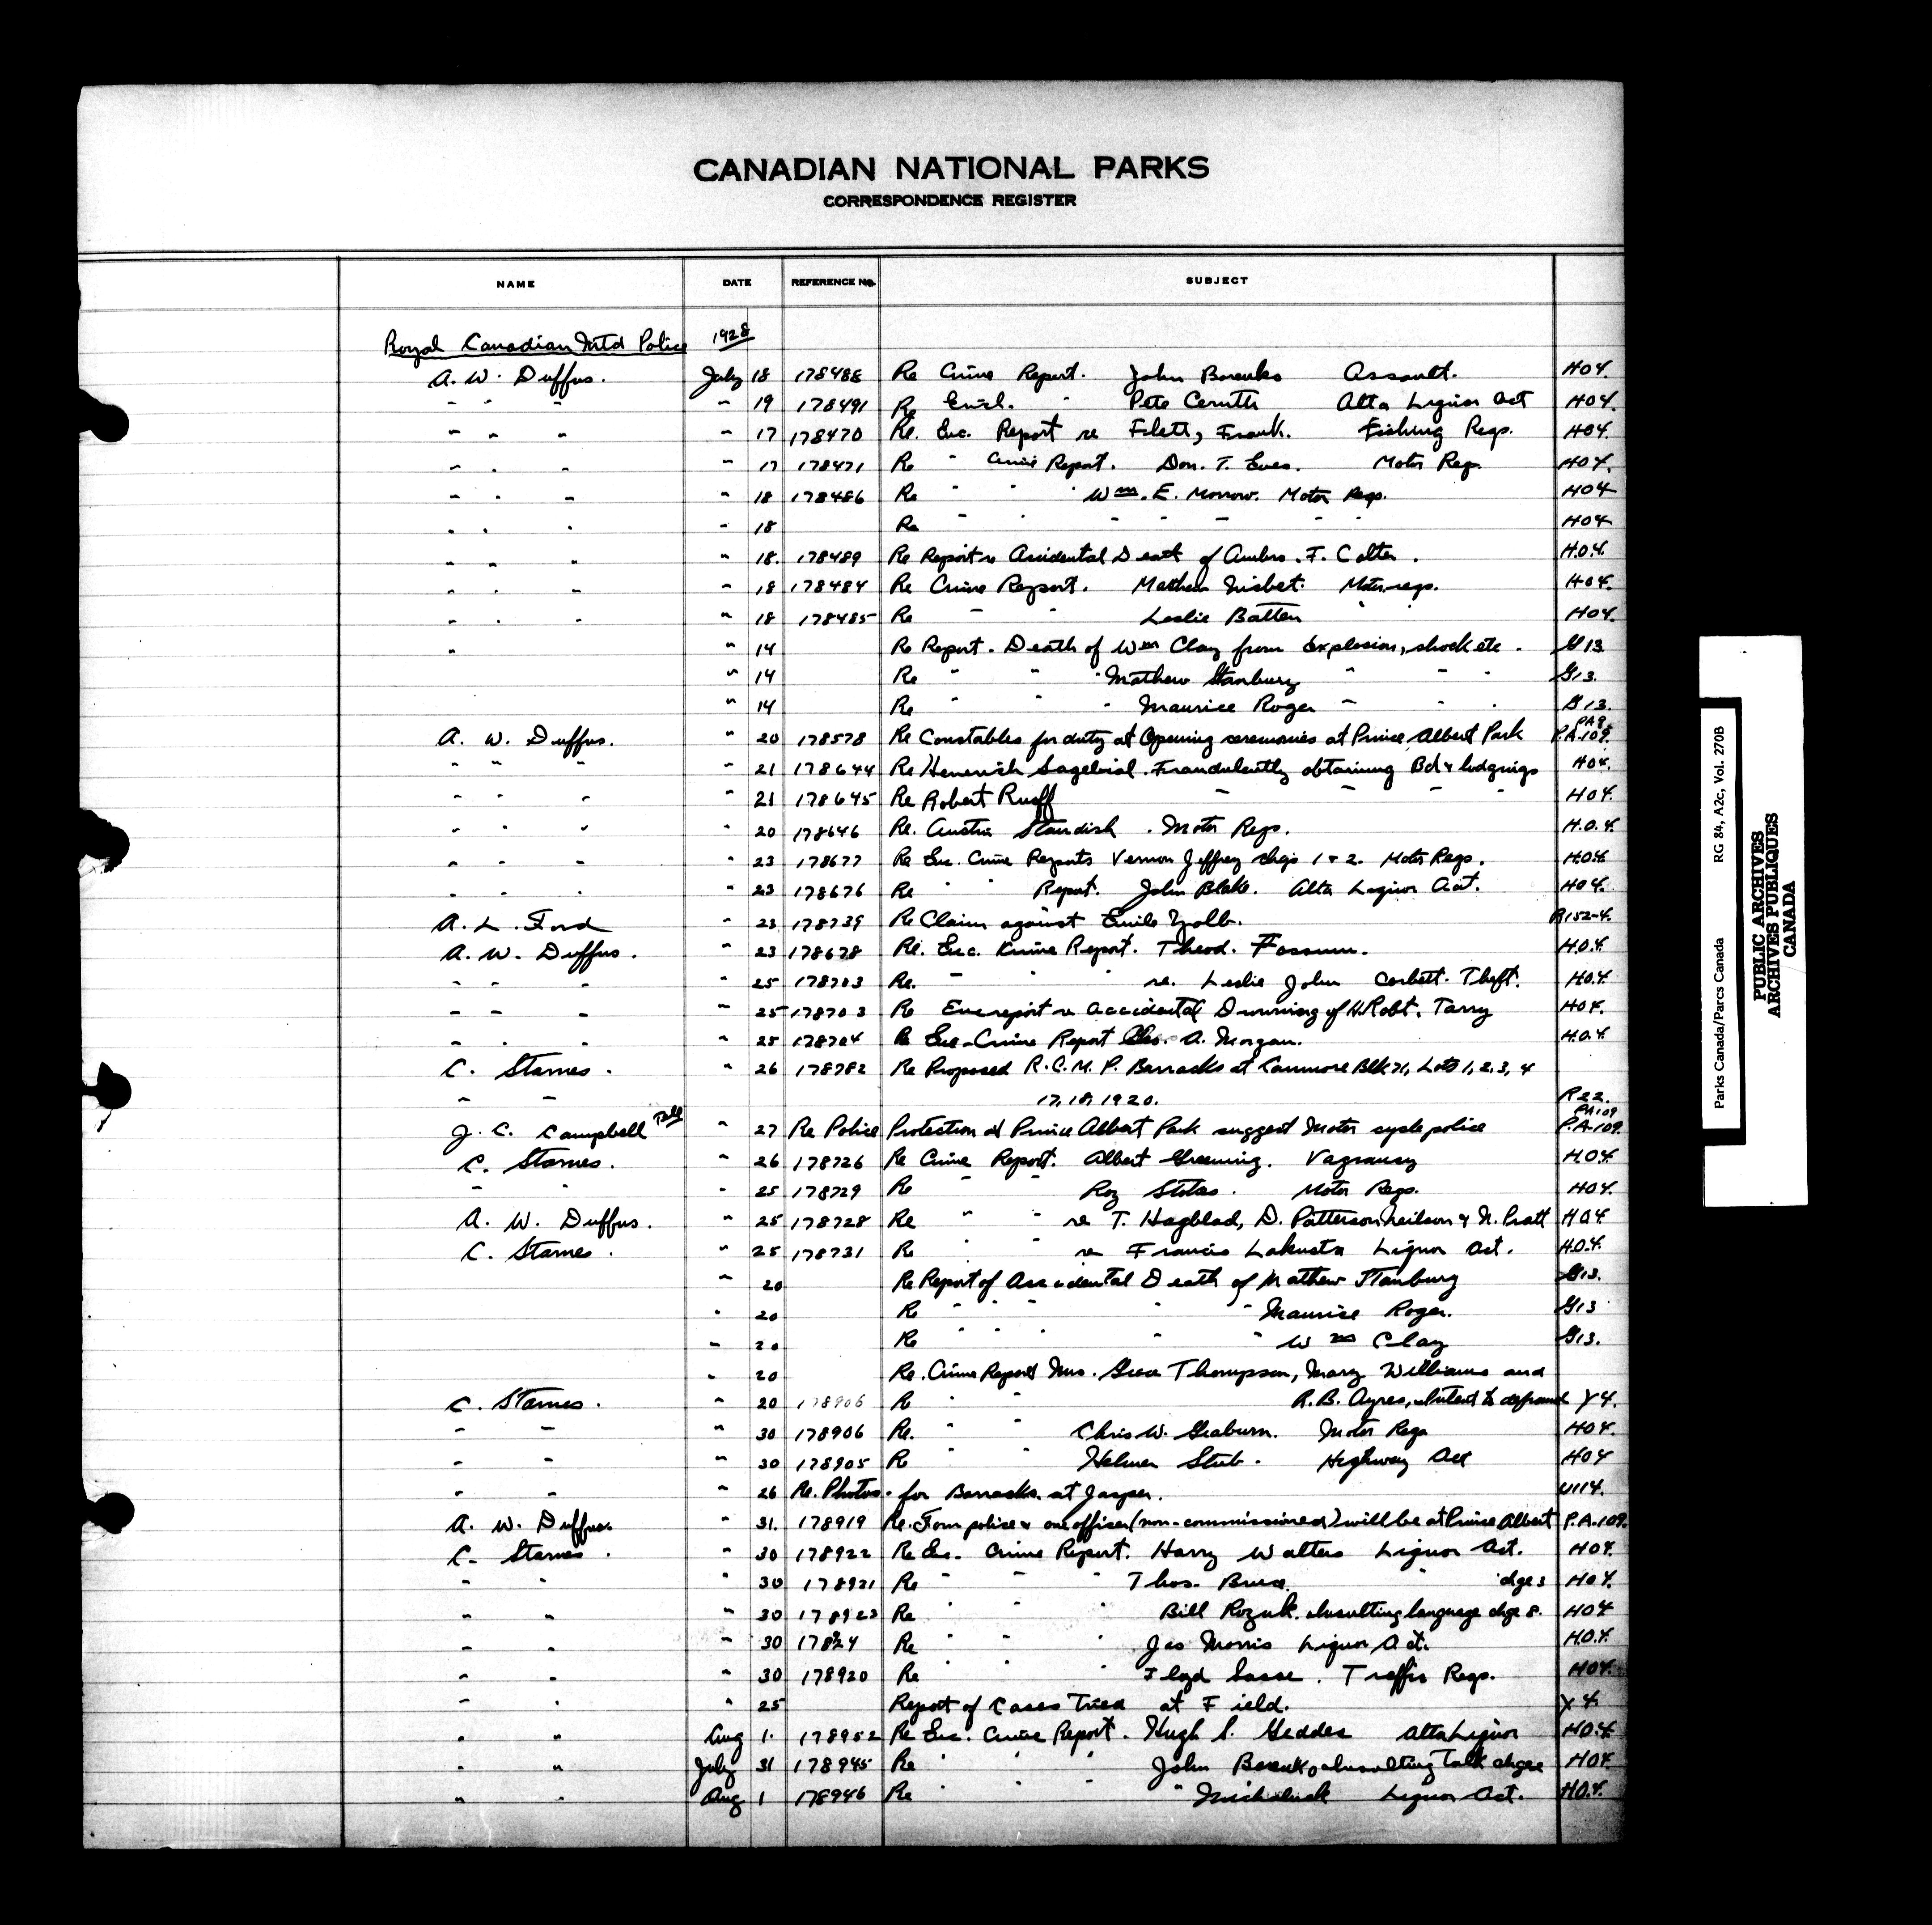 CANADIAN NATIONAL PARKS
CORRESPONDENCE REGISTER
NAME DATE REFERENCE No. SUBJECT
Royal Canadian Mtd Police 1928
A. W. Duffus. July 18 178488 Re Crime Report. John Assault. H04.
" " " " 19 178491 Re Encl. " Pete Alta Liquor Act H04.
" " " " 17 178470 Re. Enc. Report re Filett, Frank. Fishing Regs. H04.
" " " " 17 178471 Re " Crime Report. Don. T. Eves. Motor Reg. H04.
" " " " 18 178486 Re " " " Wm. E. Morrow. Motor Regs. H04
" " " " 18 Re " " " " " " " H04
" " " " 18. 178489 Re Report re Accidental Death of F. Colter. H.04.
" " " " 18 178484 Re Crime Report. Mathew Nisbet. Motor regs. H04.
" " " " 18 178485 Re " " Leslie Batten " " H04.
" " 14 Re Report. Death of Wm Clay from explosion, shock etc. G13
" 14 Re " " " Mathew Stanbury " " " G13.
" 14 Re " " " Maurice Roger " " " G13.
A. W. Duffus. " 20 178578 Re Constables for duty at Opening ceremonies at Prince Albert Park PA9. P.A.109.
" " " " 21 178644 Re Fraudulently obtaining Bd & lodgings H04.
" " " " 21 178645 Re Robert Ruff " " " " H04.
" " " " 20 178646 Re. Austin Standish. Motor Regs. H.0.4.
" " " " 23 178677 Re Enc. Crime Reports Vernon Jeffrey chgs 1 & 2. Motor Regs. H.04.
" " " " 23 178676 Re " " Report. John Blake. Alta Liquor Act. H04.
A. L. Ford " 23 178739 Re Claim against Emile R152-4.
A. W. Duffus. " 23 178678 Re. Enc. Crime Report. Theod. Fossum. H.0.4.
" " " " 25 178703 Re. " " " re. Leslie John Corbett. Theft. H.04.
" " " " 25 178703 Re Enc report re accidental Drowning of H. Robt. Tarry H04.
" " " " 25 178704 Re Enc-Crime Report A. Morgan. H.0.4.
C. Starnes. " 26 178782 Re Proposed R.C.M.P. Barracks at Canmore Blk 71, Lots 1, 2, 3, 4
" " 17, 18, 19 20. R22.
J. C. Campbell " 27 Re Police Protection at Prince Albert Park suggest Motor cycle police PA109 P.A.109.
C. Starnes. " 26 178726 Re Crime Report. Albert Greening. Vagrancy H.04.
" " " 25 178729 Re " " Roy Stokes. Motor Regs. H04.
A. W. Duffus. " 25 178728 Re " " re T. Hagblad, D. Patterson Neilson & N. Pratt H04.
C. Starnes. " 25 178731 Re " " re Francis Lakusta Liquor Act. H.04.
" 20 Re Report of Accidental Death of Mathew Stanbury G13.
" 20 Re " " " " " Maurice Roger. G13
" 20 Re " " " " " Wm Clay G13.
" 20 Re. Crime Report Mrs. Thompson, Mary Williams and
C. Starnes. " 20 178906 Re " " R.B. Ayres, intent to defraud Y4.
" " " 30 178906 Re. " " Chris W. Graburn. Motor Regs H04.
" " " 30 178905 Re " " Stub. Highway Act H04
" " " 26 Re. Photos. for Barracks at Jasper. U114.
A. W. Duffus. " 31. 178919 Re. Four police & one officer (non-commissioned) will be at Prince Albert P.A.109.
C. Starnes. " 30 178922 Re Enc. Crime Report. Harry Walters Liquor Act. H04.
" " " 30 178921 Re " " " Thos. Bruce " chge 3 H04.
" " " 30 178923 Re " " " Bill Rozuk. Insulting language chge 8. H04
" " " 30 178924 Re " " " Jas Morris Liquor Act. H.04.
" " " 30 178920 Re " " " Floyd Sasse. Traffic Regs. H04.
" " " 25 Report of Cases Tried at Field. Y4
" " Aug 1. 178952 Re Enc. Crime Report. Hugh S. Geddes Alta Liquor H04.
" " July 31 178945 Re " " " John Insulting Talk chge H04.
" " Aug 1 178946 Re " " " " Liquor Act. H.04.
Parks Canada/Parcs Canada RG 84, A2c, Vol. 270B
PUBLIC ARCHIVES
ARCHIVES PUBLIQUES
CANADA